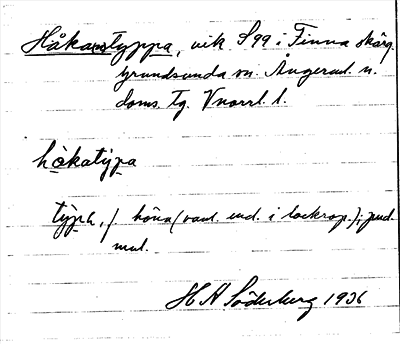 Håkanstyppa, vik S 99 i Finna skärg.
Grundsunda sn. Ångerml. n.
doms. tg. Vnorrl. l.
hòkatỳpa
tỳpa, f. höna (vanl. end. i lockrop.); jud.
mul.
H H Söderberg 1936